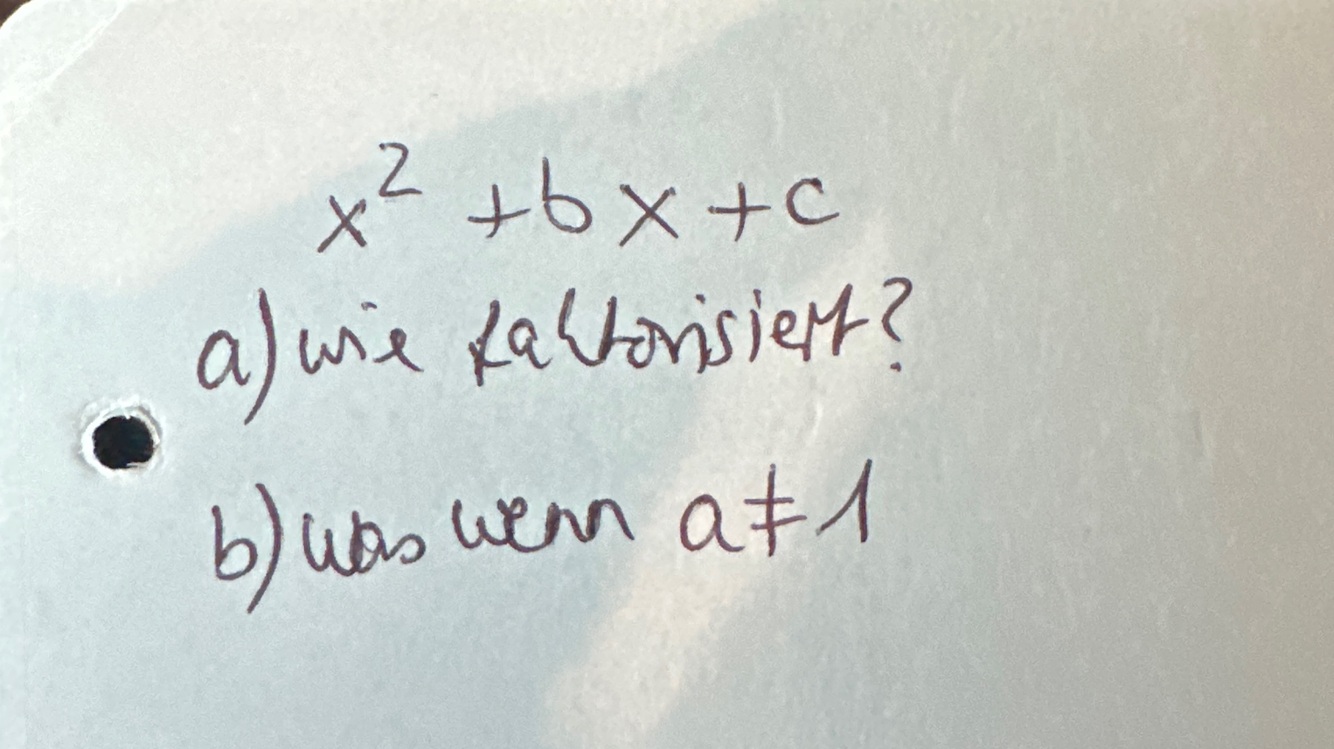 x² + bx + c
a) wie faktorisiert?
b) was wenn a ≠ 1